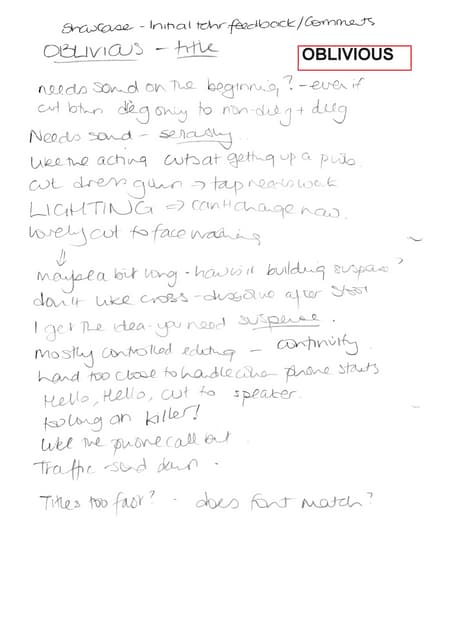 Showcase - Initial tchr feedback/Comments
OBLIVIOUS - title
OBLIVIOUS
needs sound on the beginning? - even if
cut btwn dieg only to non-dieg + dieg
Needs sound - seriously
Like the acting cuts at getting up a prob.
cut dress gown → tap needs work
LIGHTING ⇒ can't change now.
lovely cut to face washing
⇓
maybe a bit long - how is it building suspense?
don't like cross-dissolve after
I get the idea - you need suspense.
Mostly controlled editing - continuity
hand too close to handle when phone starts
Hello, Hello, cut to speaker.
too long on killer!
Like the phone call but
Traffic - sound down.
Titles too fast? - does font match?